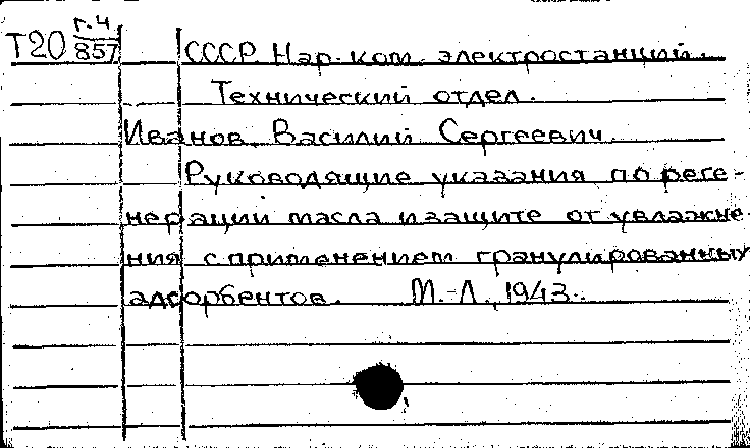 Т20 г.4/857
СССР. Нар. ком. электростанций.
Технический отдел.
Иванов, Василий Сергеевич.
Руководящие указания по реге-
нерации масла и защите от увлажне-
ния с применением гранулированных
адсорбентов. М.-Л., 1943.